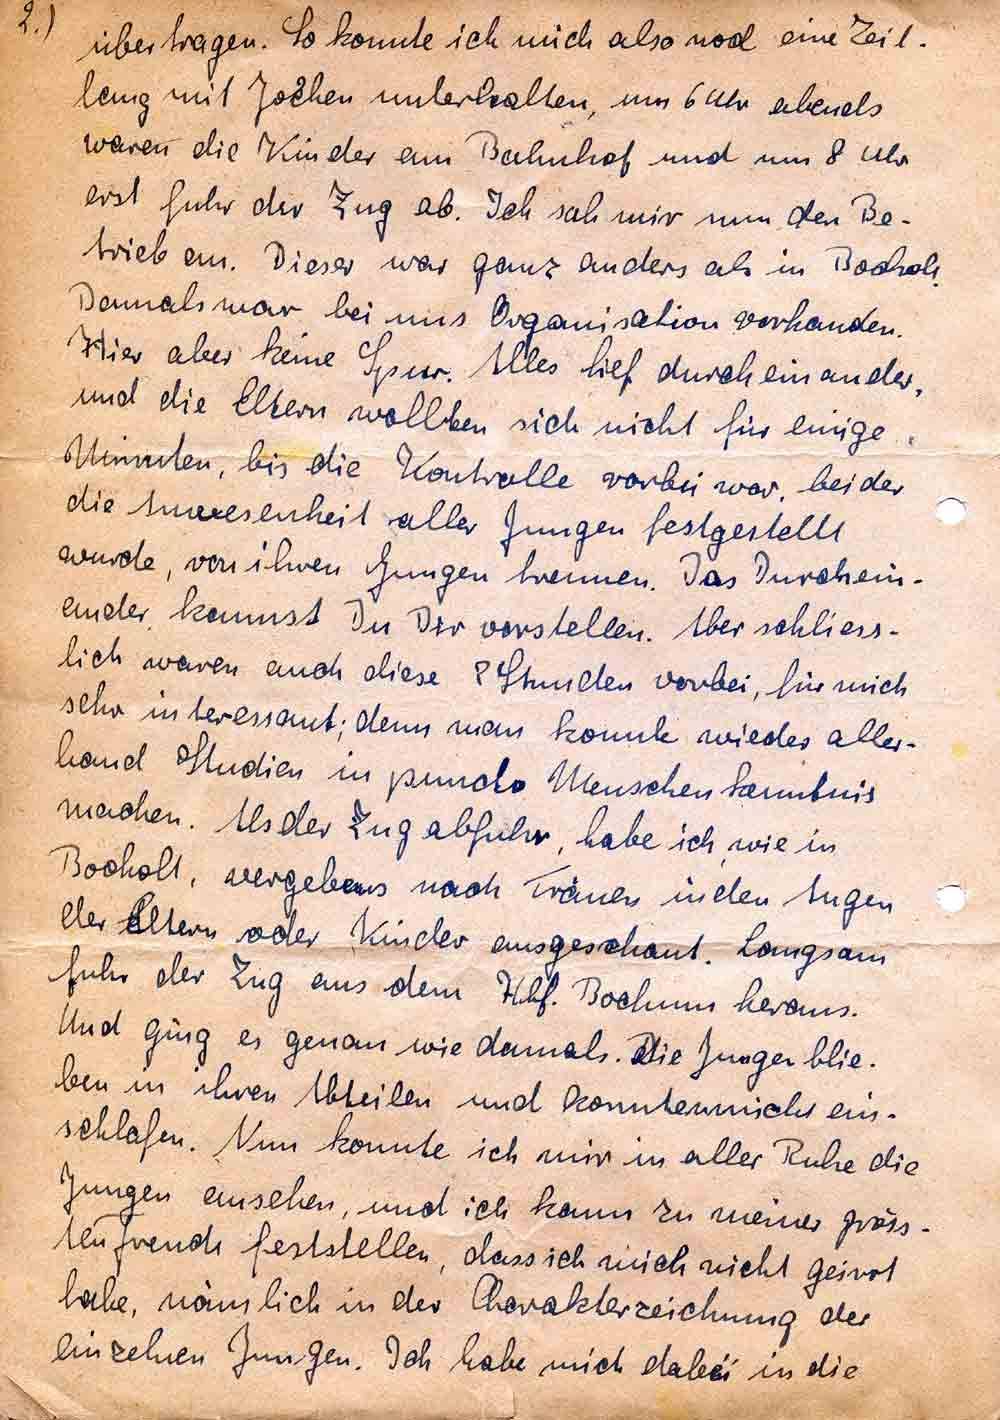 2.)
übertragen. So konnte ich mich also noch eine Zeit-
lang mit Jochen unterhalten, um 6 Uhr abends
waren die Kinder am Bahnhof und um 8 Uhr
erst fuhr der Zug ab. Ich sah mir nun den Be-
trieb an. Dieser war ganz anders als in Bocholt.
Damals war bei uns Organisation vorhanden.
Hier aber keine Spur. Alles lief durcheinander,
und die Eltern wollten sich nicht für einige
Minuten, bis die Kontrolle vorbei war, bei der
die Anwesenheit aller Jungen festgestellt
wurde, von ihren Jungen trennen. Das Durchein-
ander kannst Du Dir vorstellen. Aber schliess-
lich waren auch diese 2 Stunden vorbei, für mich
sehr interessant; denn man konnte wieder aller-
hand Studien in puncto Menschenkenntnis
machen. Als der Zug abfuhr, habe ich, wie in
Bocholt, vergebens nach Tränen in den Augen
der Eltern oder Kinder ausgeschaut. Langsam
fuhr der Zug aus dem Hbf. Bochum heraus.
Und ging es genau wie damals. Die Jungen blie-
ben in ihren Abteilen und konnten nicht ein-
schlafen. Nun konnte ich mir in aller Ruhe die
Jungen ansehen, und ich kann zu meiner gröss-
ten Freude feststellen, dass ich mich nicht geirrt
habe, nämlich in der Charakterzeichnung der
einzelnen Jungen. Ich habe mich dabei in die